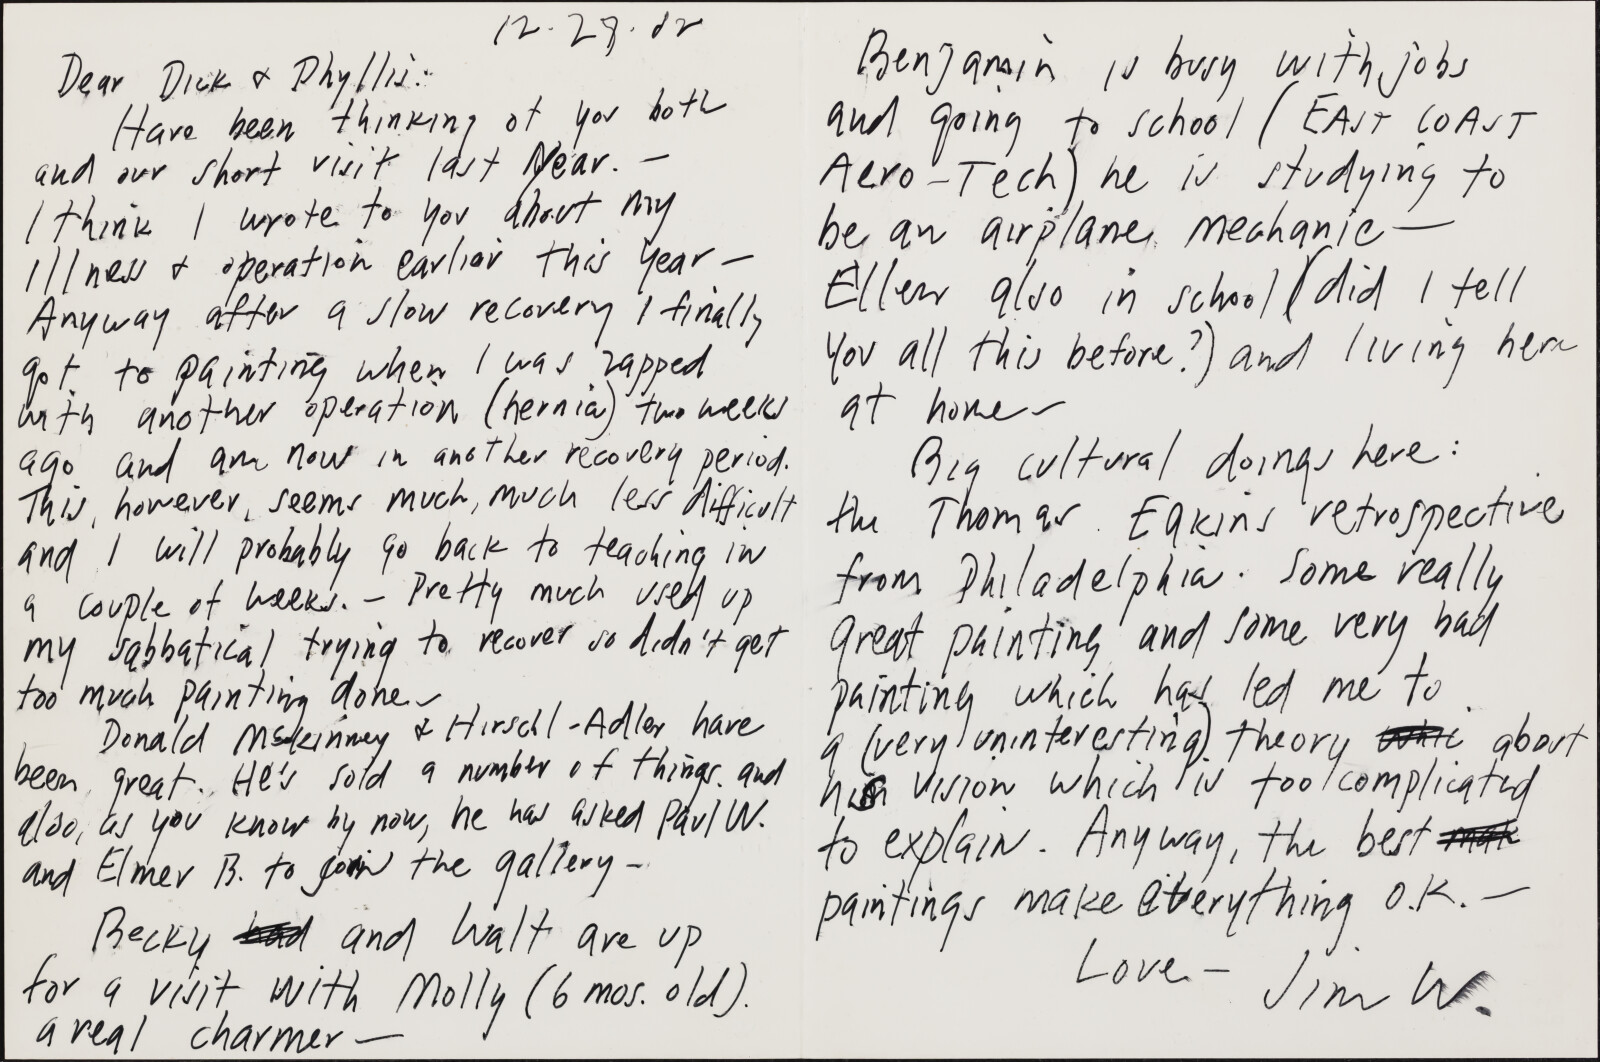 12.28.82
Dear Dick & Phyllis:
Have been thinking of you both
and our short visit last Year. —
I think I wrote to you about my
illness & operation earlier this year —
Anyway after a slow recovery I finally
got to painting when I was zapped
with another operation (hernia) two weeks
ago and am now in another recovery period.
This, however, seems much, much less difficult
and I will probably go back to teaching in
a couple of weeks. — Pretty much used up
my sabbatical trying to recover so didn't get
too much painting done —
Donald McKinney & Hirschl-Adler have
been great. He's sold a number of things and
also, as you know by now, he has asked Paul W.
and Elmer B. to join the gallery —
Becky had and Walt are up
for a visit with Molly (6 mos. old).
a real charmer —
Benjamin is busy with jobs
and going to school (EAST COAST
Aero-Tech) he is studying to
be an airplane mechanic —
Ellen also in school (did I tell
you all this before?) and living here
at home —
Big cultural doings here:
the Thomas Eakins retrospective
from Philadelphia. Some really
great painting and some very bad
painting which has led me to
a (very uninteresting) theory about
his vision which is too complicated
to explain. Anyway, the best mak
paintings make everything O.K. —
Love — Jim W.